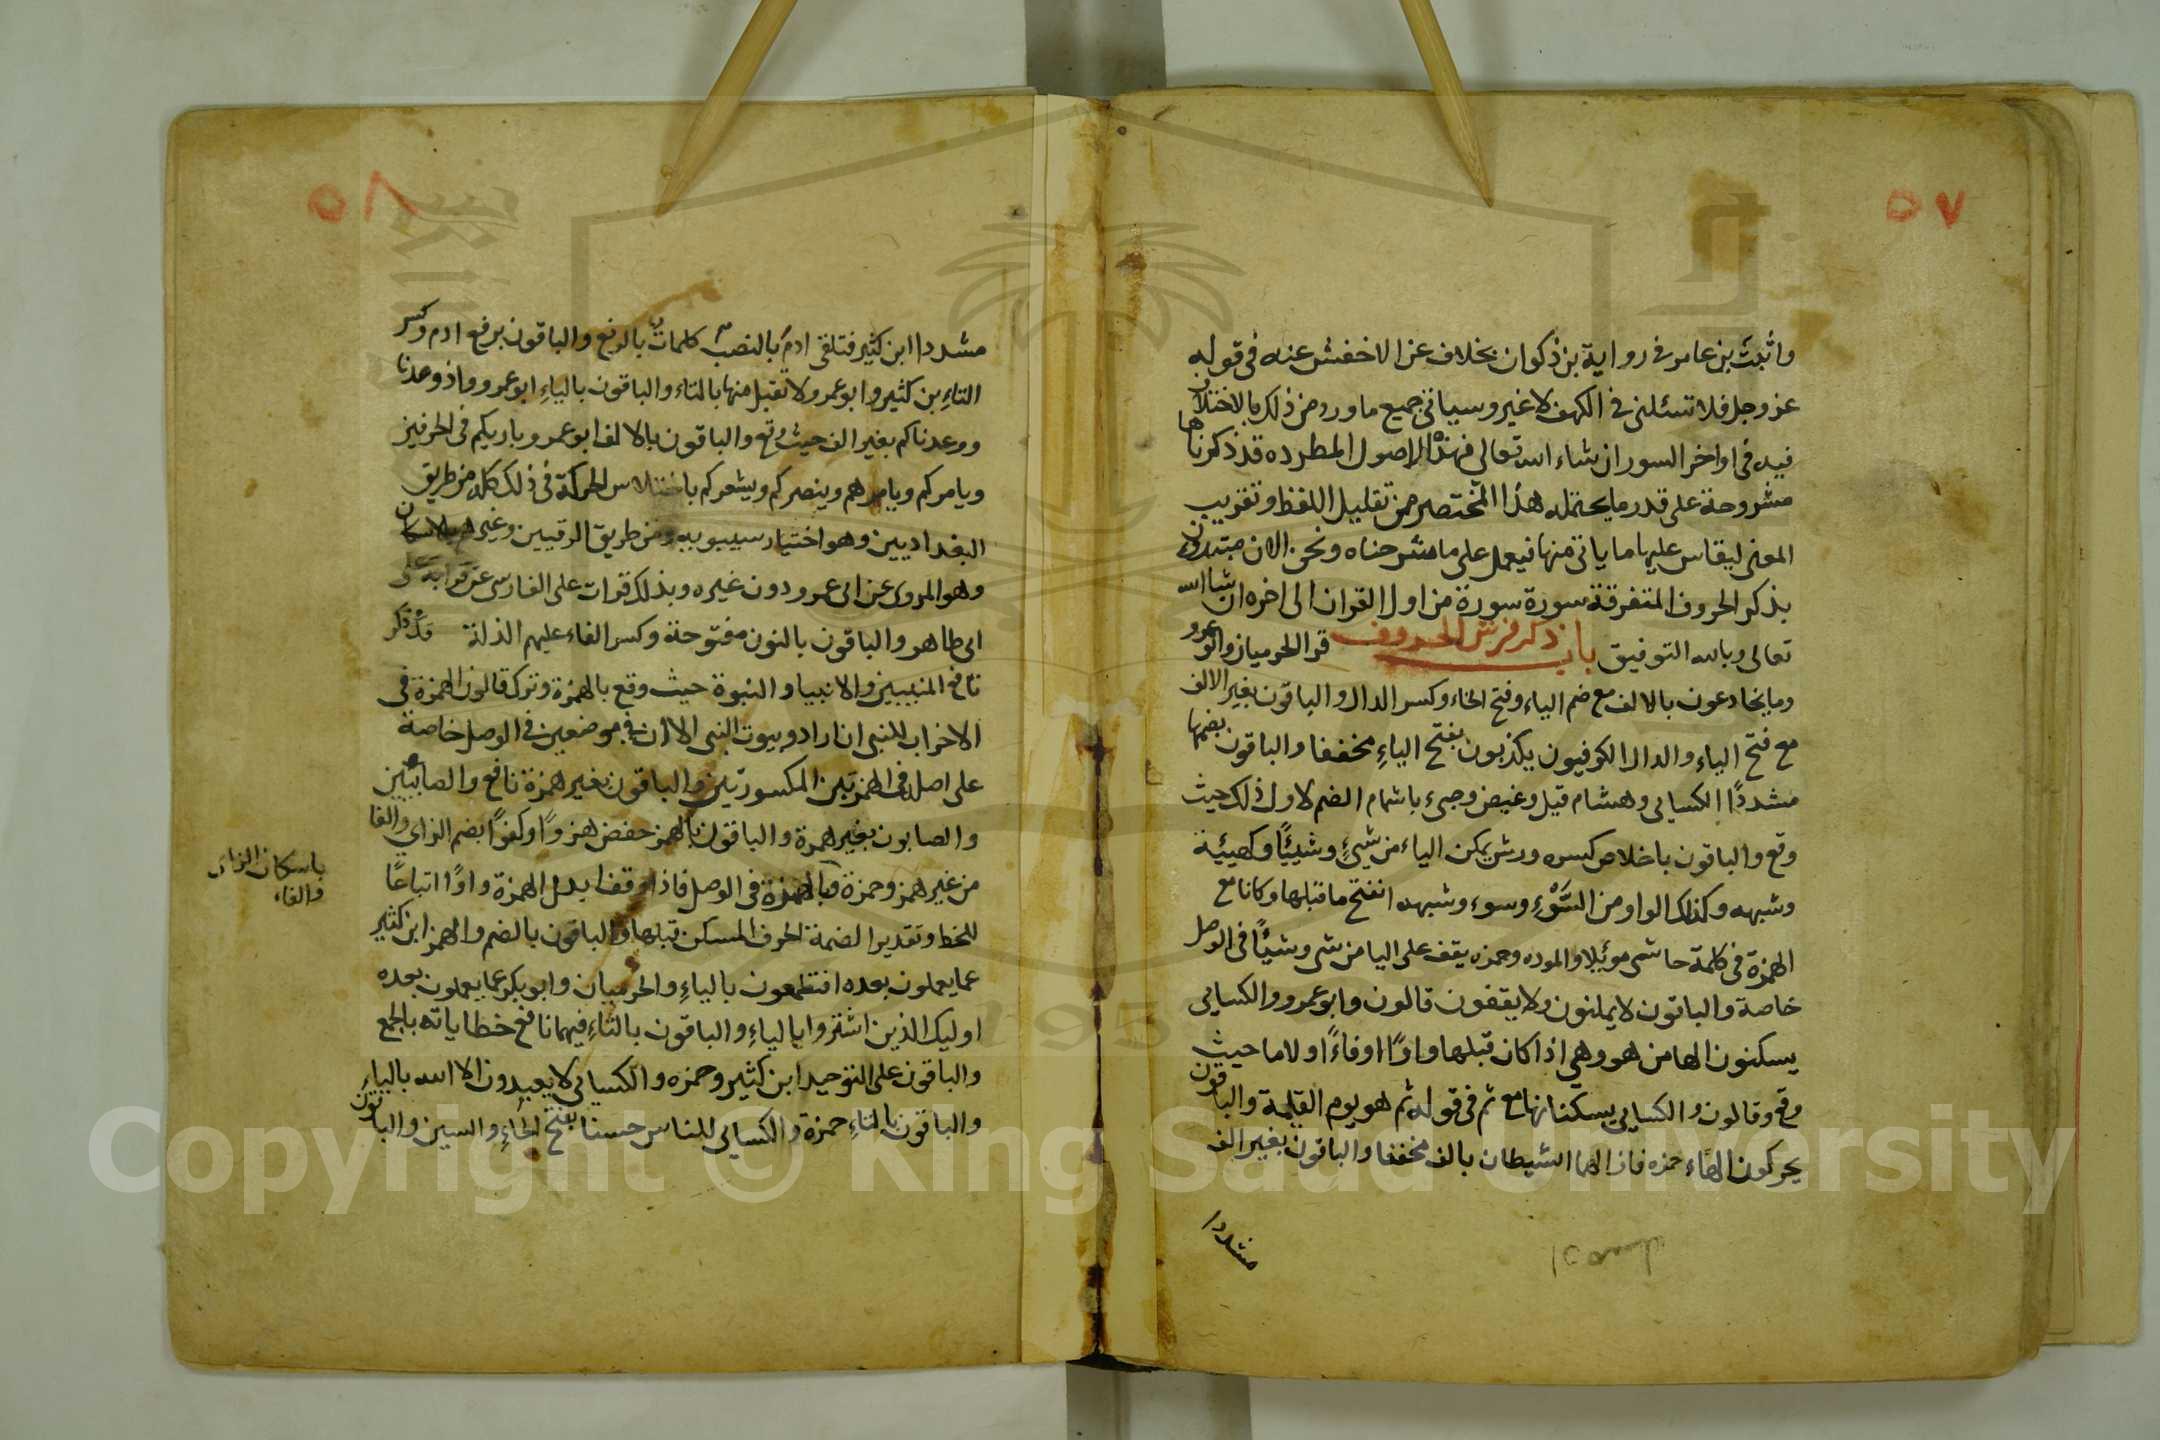 ٥٧
واثبت بن عامر في رواية بن ذكوان بخلاف عن الاخفش عنه في قوله
عز وجل فلا تسئلني في الكهف لا غير وسياتي جميع ما ورد من ذلك بالاختلاف
فيه في اواخر السور ان شاء الله تعالى فهذه الاصول المطرده قد ذكرناها
مشروحة على قدر ما يحتمله هذا المختصر من تقليل اللفظ وتقريب
المعنى ليقاس عليها ما ياتي منها فيعمل على ما شرحناه ونحن الان مبتدون
بذكر الحروف المتفرقة سورة سورة من اول القران الى اخره ان شا الله
تعالى وبالله التوفيق باب ذكر فرش الحروف قرا الحرميان وابو عمرو
وما يخادعون بالالف مع ضم الياء وفتح الخاء وكسر الدال والباقون بغير الالف
مع فتح الياء والدال الكوفيون يكذبون بفتح الياءِ مخففا والباقون بضمها
مشددًا الكسايى وهشام قيل وغيض وجىء باشمام الضم لاول ذلك حيث
وقع والباقون باخلاص كسره ورش يمكن الياء من شيءٍ وشيئًا وكهيئة
وشبهه وكذلك الواو من السَّوْءِ وسوء وشبهه انفتح ما قبلها وكانا مع
الهمزة في كلمة حاشى موئلا والموده وحمزه يقف على اليا من شى وشيئًا في الوصل
خاصة والباقون لا يملنون ولا يقفون قالون وابو عمرو والكسايى
يسكنون الها من هو وهي اذا كان قبلها واوًا او فاءً او لاما حيث
وقع وقالون والكسايي يسكنانها مع ثم في قوله ثم هو يوم القيمة والباقون
يحركون الهاء حمزه فازالهما الشيطان بالف مخففا والباقون بغير الف
مشددا
٥٨
مشددا ابن كثير فتلقى ادمَ بالنصب كلماتٌ بالرفع والباقون برفع ادم وكسر
التاءِ بن كثير وابو عمرو ولا تقبل منها بالتاء والباقون بالياءِ ابو عمرو واذ وعدنا
ووعدناكم بغير الف حيث وقع والباقون بالالف ابو عمرو باريكم في الحرفين
ويامركم ويامرهم وينصركم ويشعركم باختلاس الحركة في ذلك كله من طريق
البغداديين وهو اختيار سيبويه ومن طريق الرقيين وغيرهم بالاسكان
وهو المروى عن ابى عمرو دون غيره وبذلك قرات على الفارسى عن قرابة على
ابي طاهر والباقون بالنون مفتوحة وكسر الفاء عليهم الذلة قد ذكر
نافع النبيين والانبيا والنبوة حيث وقع بالهمزة وترك قالون الهمزة في
الاحزاب للنبى ان اراد وبيوت النبى الا ان في موضعين في الوصل خاصة
على اصله في الهمزتين المكسورتين والباقون بغير همزة نافع والصابيين
والصابون بغير همزة والباقون بالهمز حفص هزوًا وكفوًا بضم الزاي والفا
من غير همز وحمزة وبالهمزة في الوصل فاذا وقف ابدل الهمزة واوًا اتباعًا
للخط وتقدير الضمة الحرف المسكن قبلها والباقون بالضم والهمز ابن كثير
عما يعملون بعده افتطمعون بالياءِ والحرميان وابو بكر عما يعملون بعده
اوليك الذين اشتروا بالياءِ والباقون بالتاءِ فيهما نافع خطاياته بالجمع
والباقون على التوحيد ابن كثير وحمزه والكسايي لا يعبدون الا الله بالياءِ
والباقون بالتاءِ حمزة والكسايي للناس حسنا بفتح الحاءِ والسين والباقون
باسكان الزاى
والفاء
Copyright © King Saud University
195